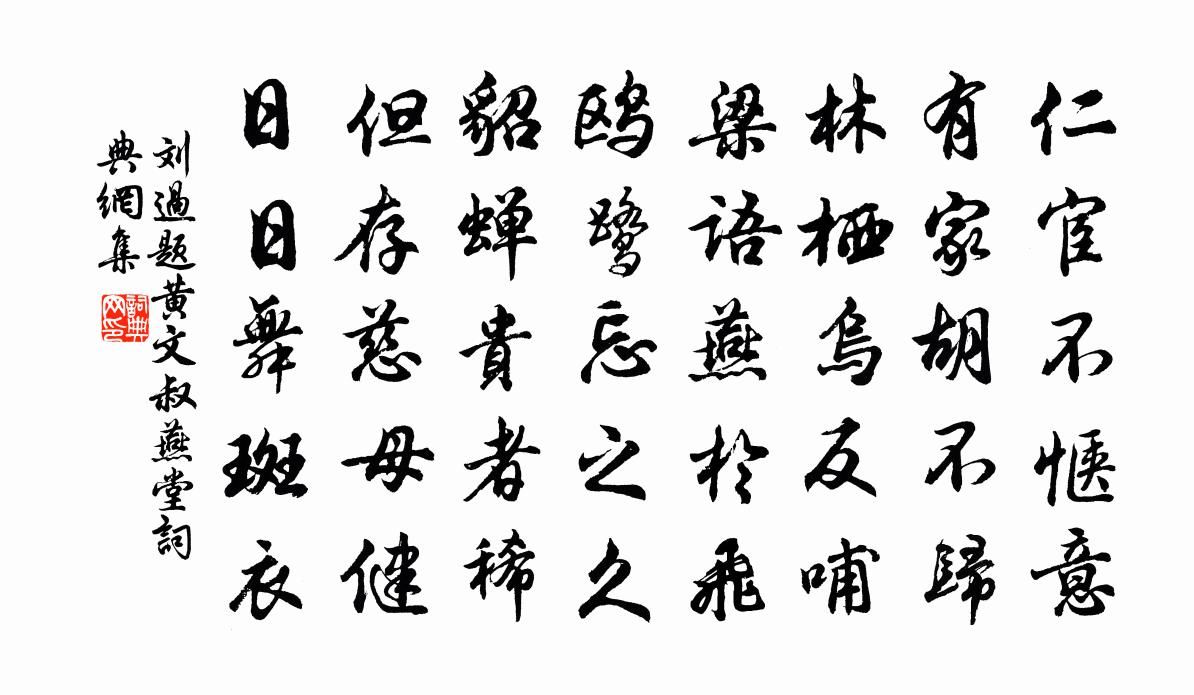 仁宦不惬意
有家胡不歸
林栖烏反哺
梁語燕於飛
鸥鹭忘之久
貂蝉貴者稀
但存慈母健
日日舞斑衣
刘過题黄文叔燕堂詞
典網集
詞典
网印